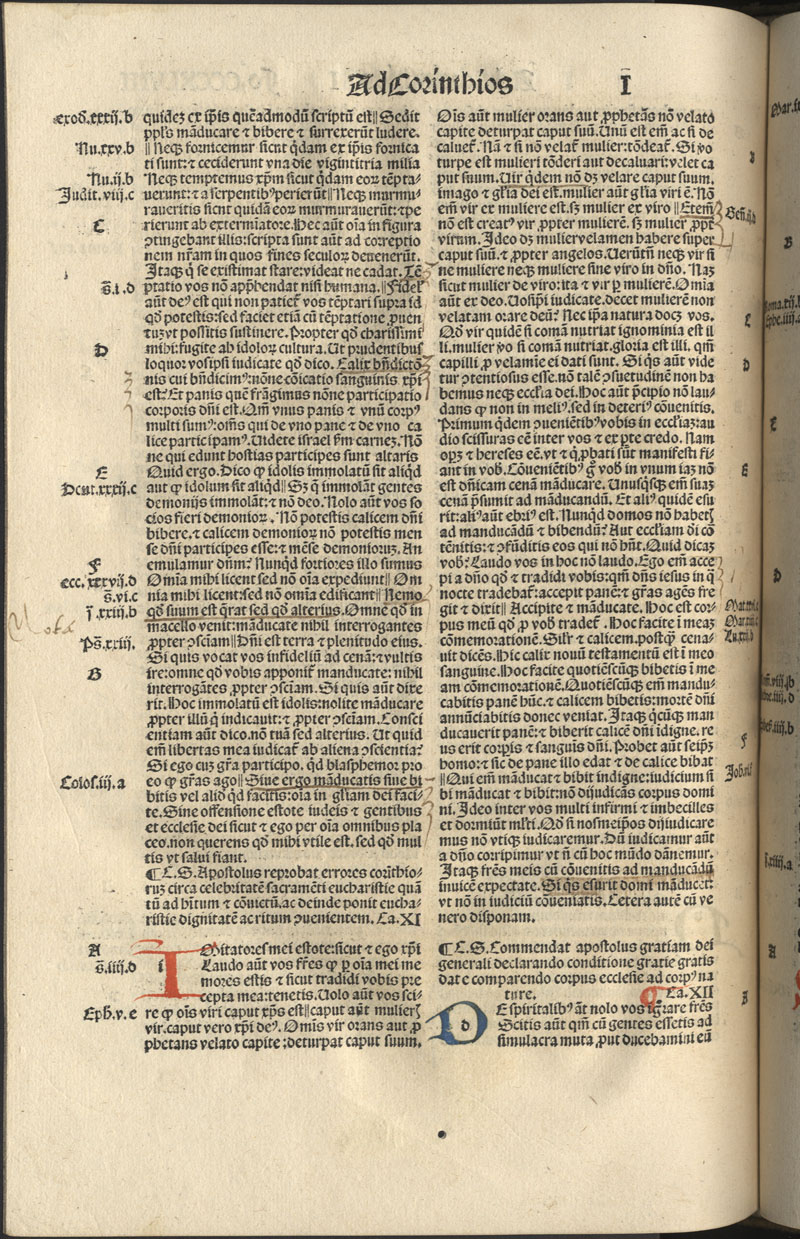 Ad Corinthios I
exod.xxxij.b
Nu.xxv.b
Nu.ij.b
Judit.viij.c
C
s.i.d
D
E
Deut.xxxij.c
F
ecc.xxxvij.d
s.vi.c
j.xxiij.b
Ps.xxiij.
B
Colos.iij.a
A
s.iiij.d
Eph.v.e
quidez ex ip̄is quēadmodū scriptū est‖Sedit
ppl's māducare ⁊ bibere ⁊ surrexerūt ludere.
‖Neqꝫ fornicemur sicut qdam ex ip̄is fornica
ti sunt:⁊ ceciderunt vna die vigintitria milia
Neqꝫ temptemus xp̄m sicut qdam eoꝝ tēpta-
uerunt:⁊ a serpentibꝰperierūt‖Neqꝫ murmu-
raueritis sicut quidā eoꝝ murmurauerūt:⁊pe
rierunt ab exterminatore.Hec aūt oīa in figura
ꝯtingebant illis:scripta sunt aūt ad correptio
nem nr̄am in quos fines seculoꝝ deuenerūt.
Itaqꝫ q̇ se existimat stare:videat ne cadat.Tē
ptatio vos nō app̄hendat nisi humana.‖Fidel'
aūt deꝰ est qui non patiet᷑ vos tēptari supra id
qd potestis:sed faciet etiā cū tēptatione ꝓuen
tuꝫ vt possitis sustinere.Propter qd charissimi
mihi:fugite ab idoloꝝ cultura.Ut prudentibus
loquor vosip̄si iudicate qd dico.Calix bn̄dictō
nis cui bn̄dicimꝰ:nōne cōicatio sanguinis xp̄i
est:Et panis quē frāgimus nōne participatio
corporis dn̄i est.Qm̄ vnus panis ⁊ vnū corpꝰ
multi sumꝰ:om̄s qui de vno pane ⁊ de vno ca
lice participamꝰ.Uidete israel fm̄ carnez.Nō
ne qui edunt hostias participes sunt altaris
Quid ergo.Dico ꝙ idolis immolatū sit aliqd
aut ꝙ idolum sit aliqd‖Sꝫ q̇ immolāt gentes
demonijs immolāt:⁊ nō deo.Nolo aūt vos so
cios fieri demonioꝝ.Nō potestis calicem dn̄i
bibere.⁊ calicem demonioꝝ nō potestis men
se dn̄i participes esse:⁊ mēse demonioruꝫ.An
emulamur dn̄m:Nunqd fortiores illo sumus
Omīa mihi licent sed nō oīa expediunt‖Om
nia mihi licent:sed nō omīa edificant‖Nemo
qd suum est q̄rat sed qd alterius.Omnē qd in
macello venit:māducate nihil interrogantes
ꝓpter ꝯsciam‖Dn̄i est terra ⁊ plenitudo eius.
Si quis vocat vos infideliū ad cenā:⁊vultis
ire:omne qd vobis apponit᷑ manducate:nihil
interrogātes ꝓpter ꝯsciam.Si quis aūt dixe
rit.Hoc immolatū est idolis:nolite māducare
ꝓpter illū q̇ indicauit:⁊ ꝓpter ꝯsciam.Consci
entiam aūt dico.nō tuā sed alterius.Ut quid
em̄ libertas mea iudicat᷑ ab aliena ꝯscientia:
Si ego cuꝫ gr̄a participo.qd blasphemor pro
eo ꝙ gr̄as ago‖Siue ergo māducatis siue bi-
bitis vel aliđ qd facitis:oīa in gl'iam dei faci-
te.Sine offensione estote iudeis ⁊ gentibus
et ecclesie dei sicut ⁊ ego per oīa omnibus pla
ceo.non querens qd mihi vtile est.sed qd mul
tis vt salui fiant.
¶L.S.Apostolus reprobat errores corīthio-
ruꝫ circa celebritatē sacramēti eucharistie quā
tū ad hītum ⁊ cōuictū.ac deinde ponit eucha-
ristie dignitatē ac ritum ꝯuenientem.Ca.XI
Imitatores mei estote:sicut ⁊ ego xp̄i
Laudo aūt vos fr̄es ꝙ p oīa mei me
mores estis ⁊ sicut tradidi vobis pre
cepta mea:tenetis.Uolo aūt vos sci-
re ꝙ oīs viri caput xp̄s est‖caput aūt mulieriꝫ
vir.caput vero xp̄i deꝰ.Omīs vir orans aut ꝓ
phetans velato capite:deturpat caput suum.
Oīs aūt mulier orans aut ꝓphetās nō velato
capite deturpat caput suū.Unū est em̄ ac si de
caluet᷑.Nā ⁊ si nō velat᷑ mulier:tōdeat᷑.Si vo
turpe est mulieri tōderi aut decaluari:velet ca
put suum.Uir qdem nō dꝫ velare caput suum.
imago ⁊ gl'ia dei est.mulier aūt gl'ia viri ē.Nō
em̄ vir ex muliere est.sꝫ mulier ex viro‖Eteīm
nō est creatꝰ vir ꝓpter mulierē.sꝫ mulier ꝓpt'
virum.Ideo dꝫ mulier velamen habere super
caput suū.⁊ ꝓpter angelos.Uerūtn̄ neqꝫ vir si
ne muliere neqꝫ muliere sine viro in dn̄o.Naꝫ
sicut mulier de viro:ita ⁊ vir p mulierē.Omīa
aūt ex deo.Uosip̄i iudicate.decet mulierē non
velatam orare deū:Nec ip̄a natura docꝫ vos.
Qd vir quidē si comā nutriat ignominia est il
li.mulier ꝟo si comā nutriat.gloria est illi.qm̄
capilli ꝓ velamīe ei dati sunt.Si q̇s aūt vide
tur ꝯtentiosus esse.nō talē ꝯsuetudinē non ha
bemus neqꝫ ecclīa dei.Hoc aūt p̄cipio nō lau-
dans ꝙ non in meliꝰ.sed in deteriꝰ cōuenitis.
Primum qdem ꝯuenientibꝰ vobis in eccl'iaꝫ:au
dio scissuras eē inter vos ⁊ ex pte credo.Nam
opꝫ ⁊ hereses eē.vt ⁊ q̇ ꝓbati sūt manifesti fi-
ant in vob.Cōuenientibꝰ g̊ vob in vnum iaꝫ nō
est dn̄icam cenā māducare.Unusqsqꝫ em̄ suaꝫ
cenā p̄sumit ad māducandū.Et aliꝰ quidē esu
rit:aliꝰ aūt ebriꝰ est.Nunqd domos nō habetꝭ
ad manducādū ⁊ bibendū:Aut eccl'iam dī cō
tēnitis:⁊ ꝯfūditis eos qui nō hn̄t.Quid dicaꝫ
vob:Laudo vos in hoc nō laudo.Ego em̄ acce
pi a dn̄o qd ⁊ tradidi vobis:qm̄ dn̄s iesus in q̄
nocte tradebat᷑:accepit panē:⁊ gr̄as agēs fre
git ⁊ dixit‖Accipite ⁊ māducate.Hoc est cor-
pus meū qd ꝓ vob tradet᷑.Hoc facite ī meaꝫ
cōmemorationē.Sil'r ⁊ calicem.postq̄ cena-
uit dicēs.Hic calix nouū testamentū est ī meo
sanguine.Hoc facite quotiēscūqꝫ bibetis ī me
am cōmemorationē.Quotiēscūqꝫ em̄ mandu-
cabitis panē hūc.⁊ calicem bibetis:mortē dn̄i
annūciabitis donec veniat.Itaqꝫ q̇cūqꝫ man
ducauerit panē:⁊ biberit calicē dn̄i īdigne.re
us erit corꝑis ⁊ sanguīs dn̄i.Probet aūt seip̄ꝫ
homo:⁊ sic de pane illo edat ⁊ de calice bibat
‖Qui em̄ māducat ⁊ bibit indigne:iudicium si
bi māducat ⁊ bibit:nō dijudicās corpus domi
ni.Ideo inter vos multi infirmi ⁊ imbecilles
et dormiūt ml'ti.Qd si nosmeip̄os dijudicare
mus nō vtiqꝫ iudicaremur.Dū iudicamur aūt
a dn̄o corripimur vt n̄ cū hoc mūdo dānemur.
Itaqꝫ fr̄es meis cū cōuenitis ad manducādū
inuicē expectate.Si q̇s esurit domi māducet:
vt nō in iudiciū cōueniatis.Cetera autē cū ve
nero disponam.
¶L.S.Commendat apostolus gratiam dei
generali declarando conditione gratie gratis
date comparendo corpus ecclesie ad corpꝰ na
ture. Ca.XII
DEspiritalibꝰ āt nolo vos ignorare fr̄es
Scitis aūt qm̄ cū gentes essetis ad
simulacra muta ꝓut ducebamini eū
B
C
D
E
Joh.